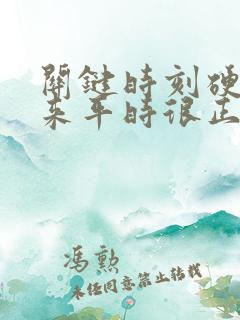 關鍵時刻硬
来平時很正
馮勲
未经同意禁止转载